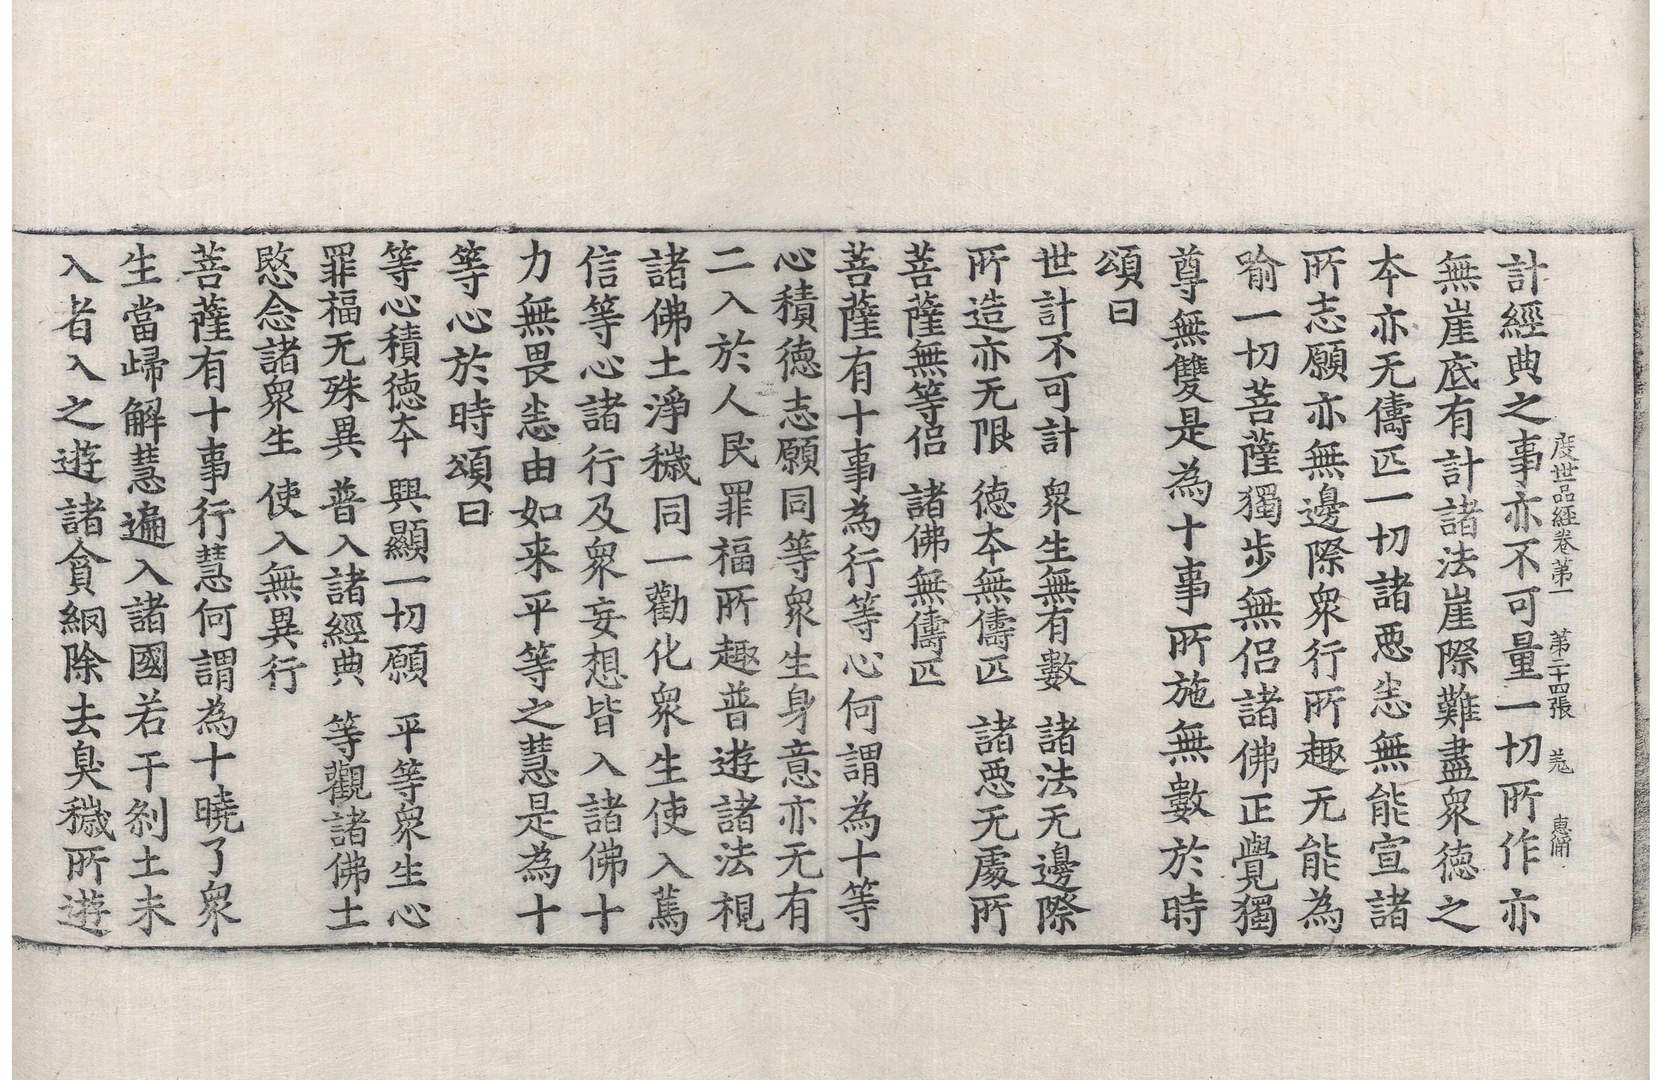 度世品經卷第一 第二十四張 羗 惠俑
計經典之事亦不可量一切所作亦
無崖底有計諸法崖際難盡衆德之
本亦无儔匹一切諸惡恙無能宣諸
所志願亦無邊際衆行所趣无能為
喻一切菩薩獨步無侣諸佛正覺獨
尊無雙是為十事所施無數於時
頌曰
世計不可計 衆生無有數 諸法无邊際
所造亦无限 德本無儔匹 諸惡无處所
菩薩無等侶 諸佛無儔匹
菩薩有十事為行等心何謂為十等
心積德志願同等衆生身意亦无有
二入於人民罪福所趣普遊諸法視
諸佛土淨穢同一勸化衆生使入篤
信等心諸行及衆妄想皆入諸佛十
力無畏恙由如来平等之慧是為十
等心於時頌曰
等心積德本 興顯一切願 平等衆生心
罪福无殊異 普入諸經典 等觀諸佛土
愍念諸衆生 使入無異行
菩薩有十事行慧何謂為十曉了衆
生當歸解慧遍入諸國若干剎土未
入者入之遊諸貪網除去臭穢所遊